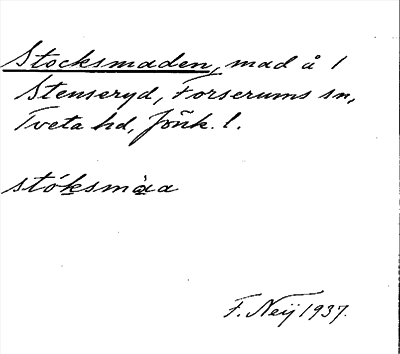 Stocksmaden, mad å 1
Stenseryd, Forserums sn,
Tveta hd, Jönk. l.
stóksmàa
F. Neij 1937.